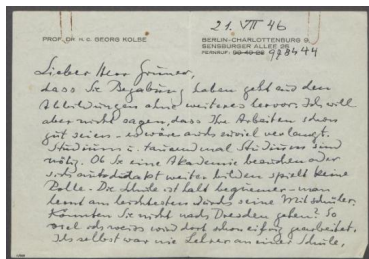 21. VII 46
PROF. DR. H. C. GEORG KOLBE
BERLIN-CHARLOTTENBURG 9
SENSBURGER ALLEE 26
FERNRUF: 99 40 26 998444
Lieber Herr Grüner,
dass Sie Begabung haben geht aus den
Abbildungen ohne weiteres hervor. Ich will
aber nicht sagen, dass Ihre Arbeiten schon
gut seien - es wäre auch zuviel verlangt.
Studium u. tausendmal Studium sind
nötig. Ob Sie eine Akademie besuchen oder
sich autodidakt weiter bilden spielt keine
Rolle - Die Schule ist halt bequemer - man
lernt am leichtesten durch seine Mitschüler.
Könnten Sie nicht nach Dresden gehen? So
viel ich weiss wird dort schon eifrig gearbeitet.
Ich selbst war nie Lehrer an einer Schule,